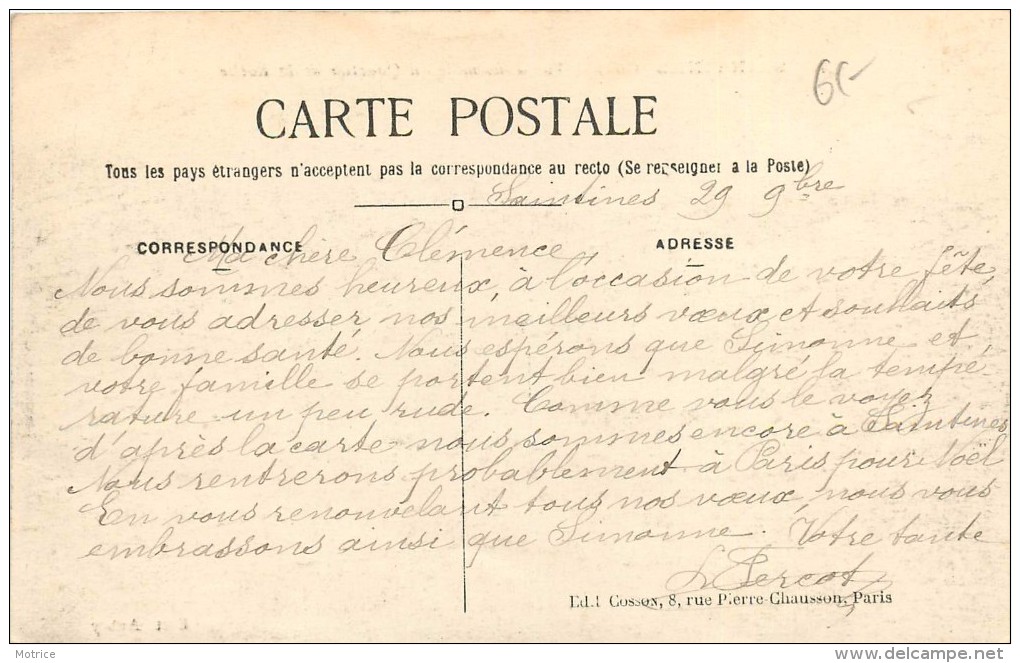 6f-
CARTE POSTALE
Tous les pays étrangers n'acceptent pas la correspondance au recto (Se renseigner a la Poste)
Saintines 29 9bre
CORRESPONDANCE
ADRESSE
Ma chère Clémence,
Nous sommes heureux, à l'occasion de votre fête,
de vous adresser nos meilleurs vœux et souhaits
de bonne santé. Nous espérons que Simonne et
votre famille se portent bien malgré la tempé
rature un peu rude. Comme vous le voyez
d'après la carte nous sommes encore à Saintines
Nous rentrerons probablement à Paris pour Noël
En vous renouvelant tous nos vœux, nous vous
embrassons ainsi que Simonne. Votre tante
Percot
Edit Cosson, 8, rue Pierre-Chausson, Paris
Motrice
delcampe.net